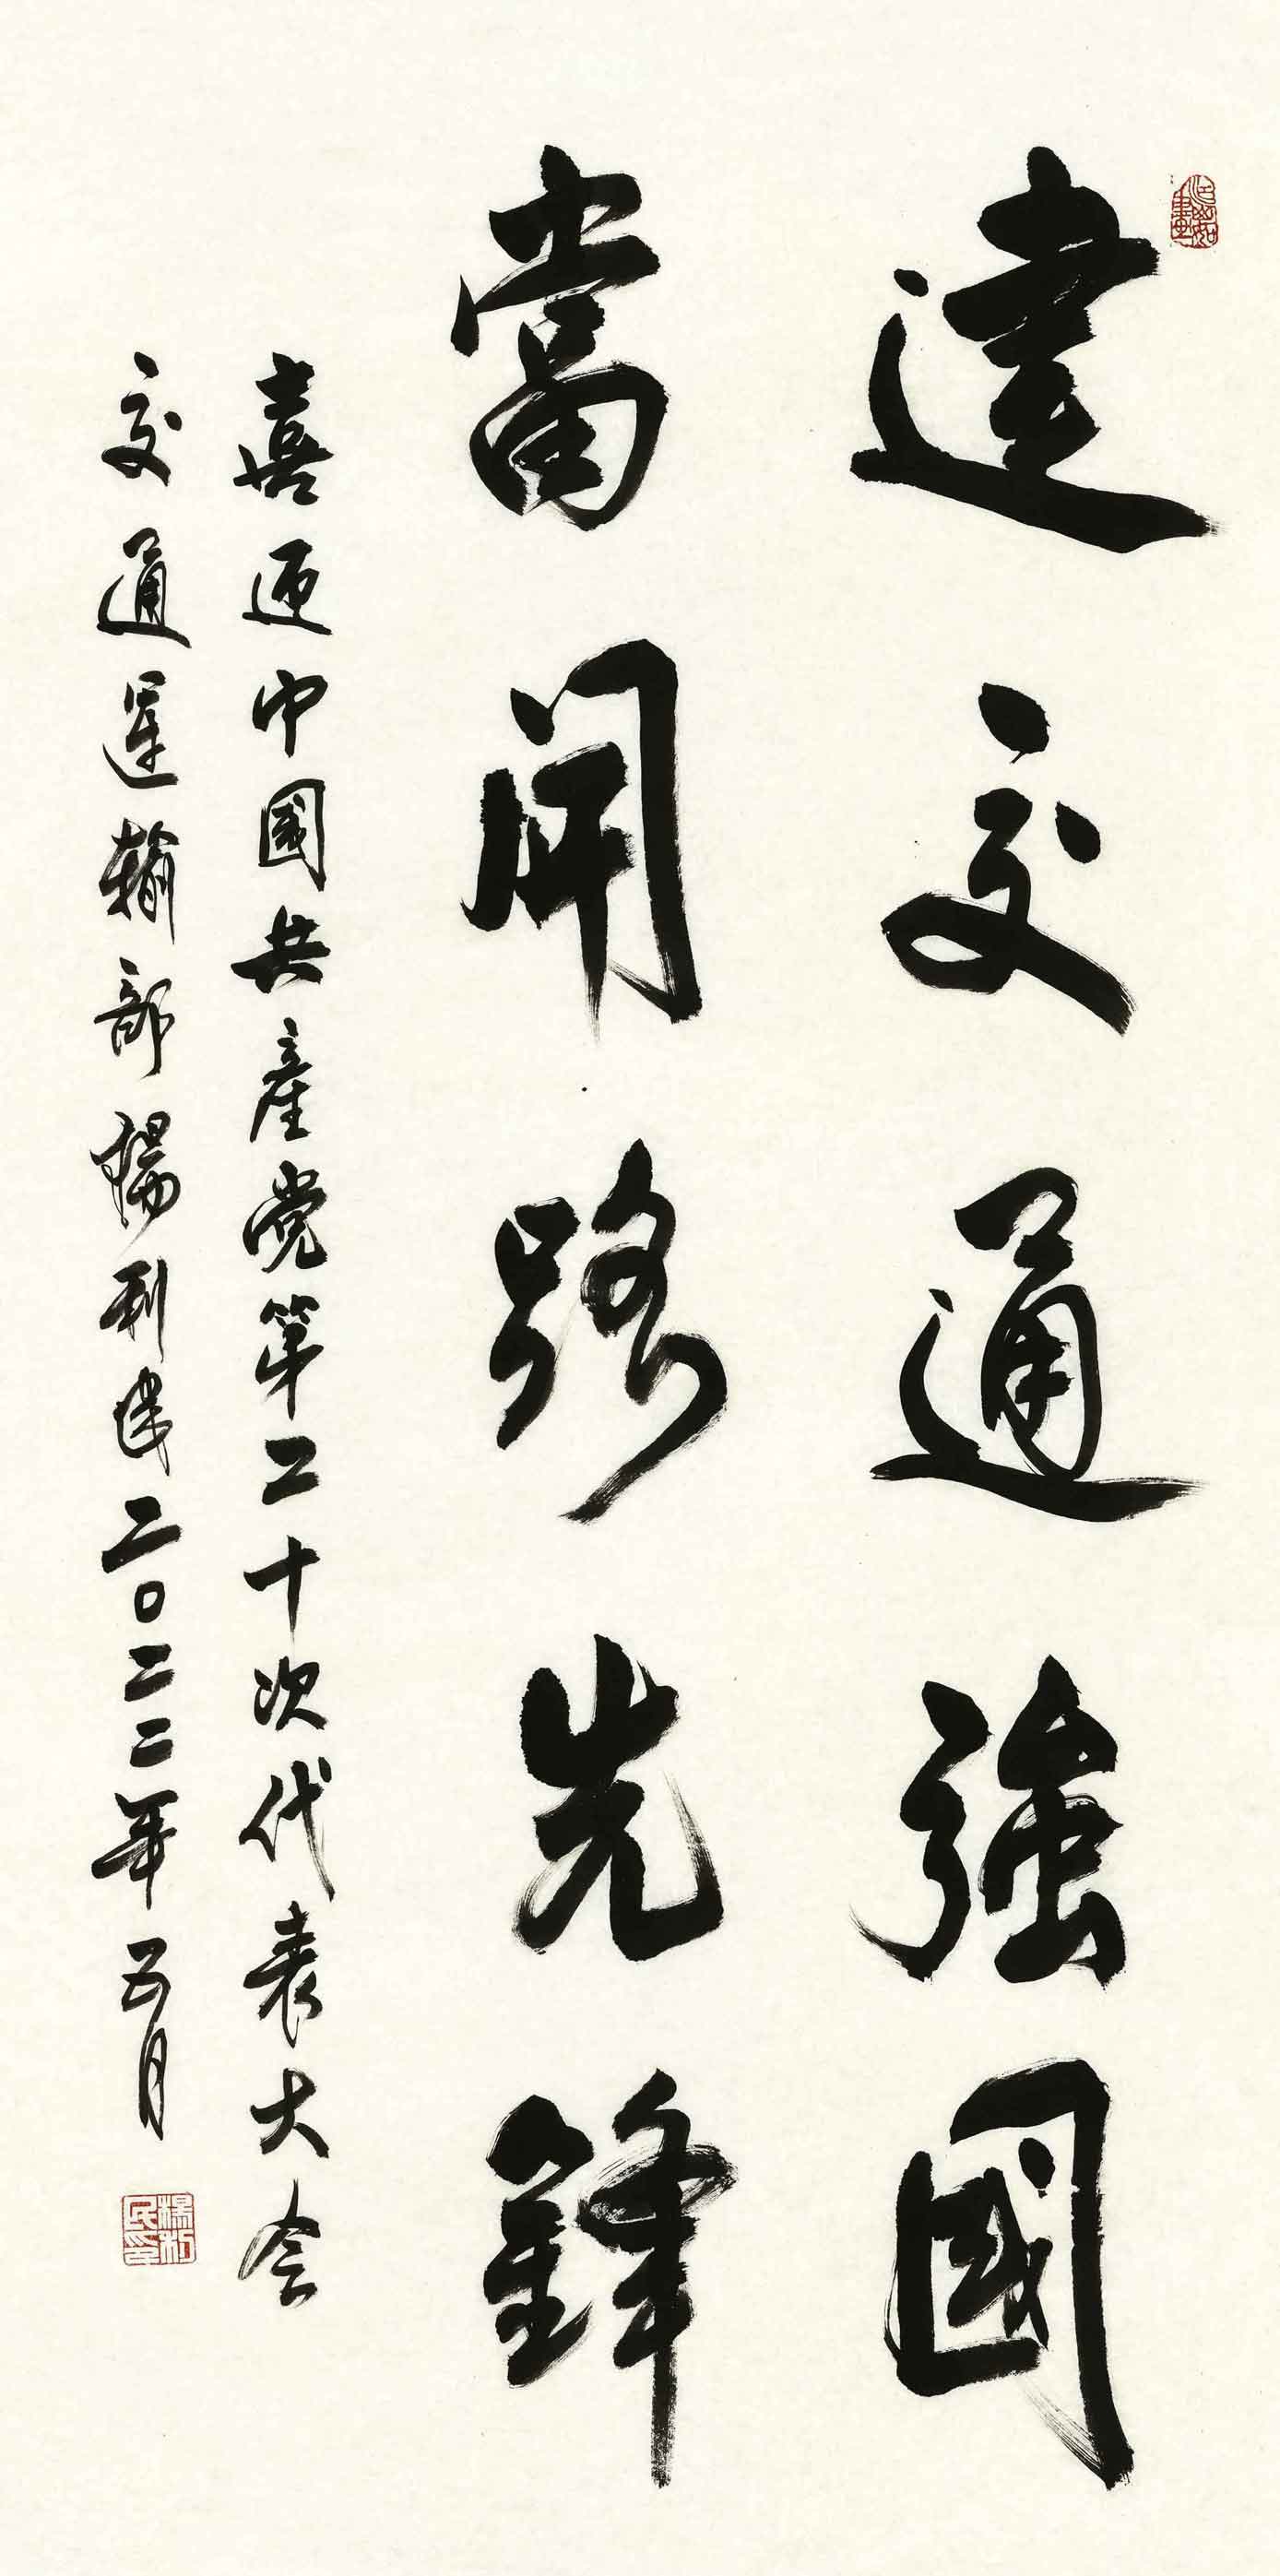 建交通強國
當開路先鋒
喜迎中國共產党第二十次代表大会
交通運輸部楊利民二〇二二年五月
楊利民印